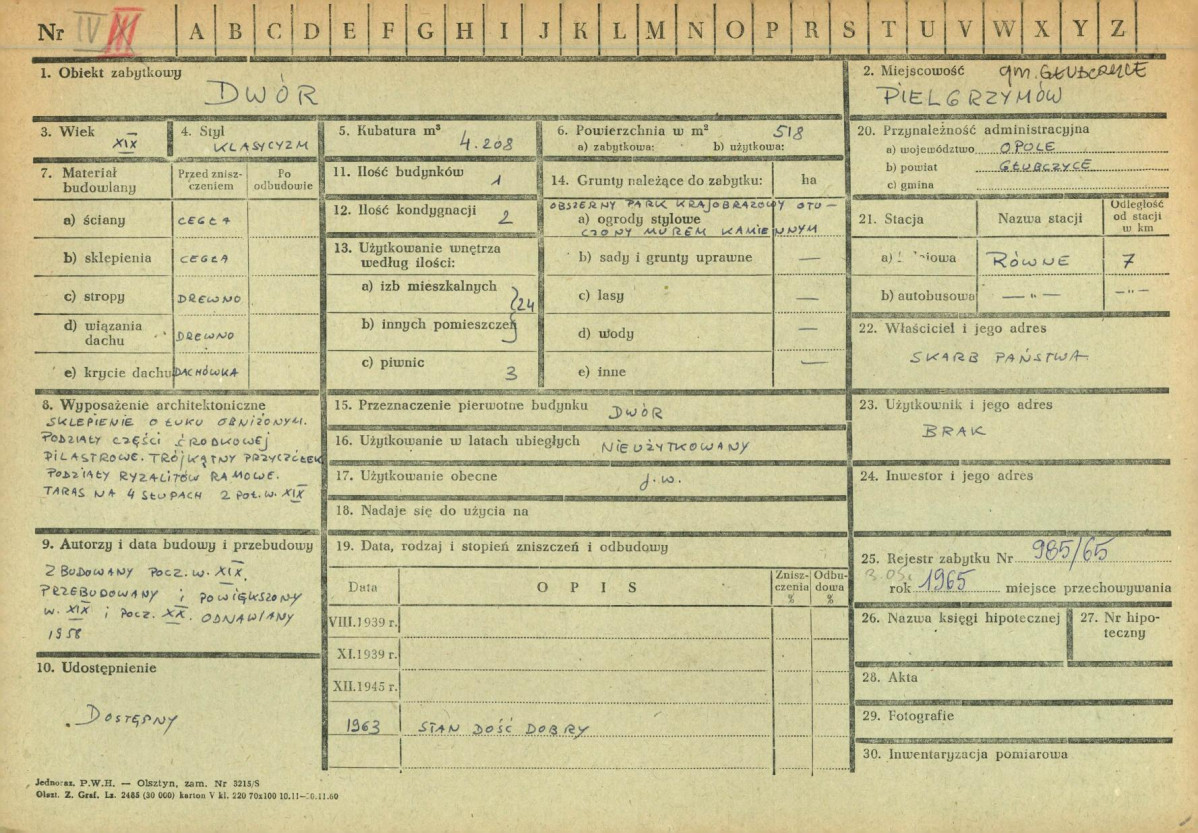 Nr IV III A B C D E F G H I J K L M N O P R S T U V W X Y Z
1. Obiekt zabytkowy
DWÓR
2. Miejscowość gm. GŁUBCZYCE
PIELGRZYMÓW
3. Wiek
XIX
4. Styl
KLASYCYZM
5. Kubatura m³
4.208
6. Powierzchnia w m² 518
a) zabytkowa: b) użytkowa:
20. Przynależność administracyjna
a) województwo OPOLE
b) powiat GŁUBCZYCE
c) gmina
7. Materiał budowlany
Przed zniszczeniem
Po odbudowie
a) ściany CEGŁA
b) sklepienia CEGŁA
c) stropy DREWNO
d) wiązania dachu DREWNO
e) krycie dachu DACHÓWKA
11. Ilość budynków 1
12. Ilość kondygnacji 2
13. Użytkowanie wnętrza
według ilości:
a) izb mieszkalnych
b) innych pomieszczeń } 24
c) piwnic 3
14. Grunty należące do zabytku: ha
OBSZERNY PARK KRAJOBRAZOWY OTO-
a) ogrody stylowe
CZONY MUREM KAMIENNYM
b) sady i grunty uprawne —
c) lasy —
d) wody —
e) inne —
21. Stacja
Nazwa stacji
Odległość
od stacji
w km
a) RÓWNE 7
b) autobusowa — " — — " —
22. Właściciel i jego adres
SKARB PAŃSTWA
8. Wyposażenie architektoniczne
SKLEPIENIE O ŁUKU OBNIŻONYM.
PODZIAŁY CZĘŚCI ŚRODKOWEJ
PILASTROWE. TRÓJKĄTNY PRZYCZÓŁEK
PODZIAŁY RYZALITÓW RAMOWE.
TARAS NA 4 SŁUPACH 2 POŁ. W. XIX
15. Przeznaczenie pierwotne budynku DWÓR
16. Użytkowanie w latach ubiegłych NIEUŻYTKOWANY
17. Użytkowanie obecne j.w.
18. Nadaje się do użycia na
23. Użytkownik i jego adres
BRAK
24. Inwestor i jego adres
9. Autorzy i data budowy i przebudowy
ZBUDOWANY POCZ. W. XIX,
PRZEBUDOWANY i POWIĘKSZONY
W. XIX i POCZ. XX. ODNAWIANY
1958
10. Udostępnienie
DOSTĘPNY
19. Data, rodzaj i stopień zniszczeń i odbudowy
Data
O P I S
Zniszczenia %
Odbudowa %
VIII.1939 r.
XI.1939 r.
XII.1945 r.
1963 STAN DOŚĆ DOBRY
25. Rejestr zabytku Nr 985/65
3.05.
rok 1965 miejsce przechowywania
26. Nazwa księgi hipotecznej
27. Nr hipoteczny
28. Akta
29. Fotografie
30. Inwentaryzacja pomiarowa
Jednoraz. P.W.H. — Olsztyn, zam. Nr 3215/S
Olszt. Z. Graf. Lz. 2485 (30 000) karton V kl. 220 70x100